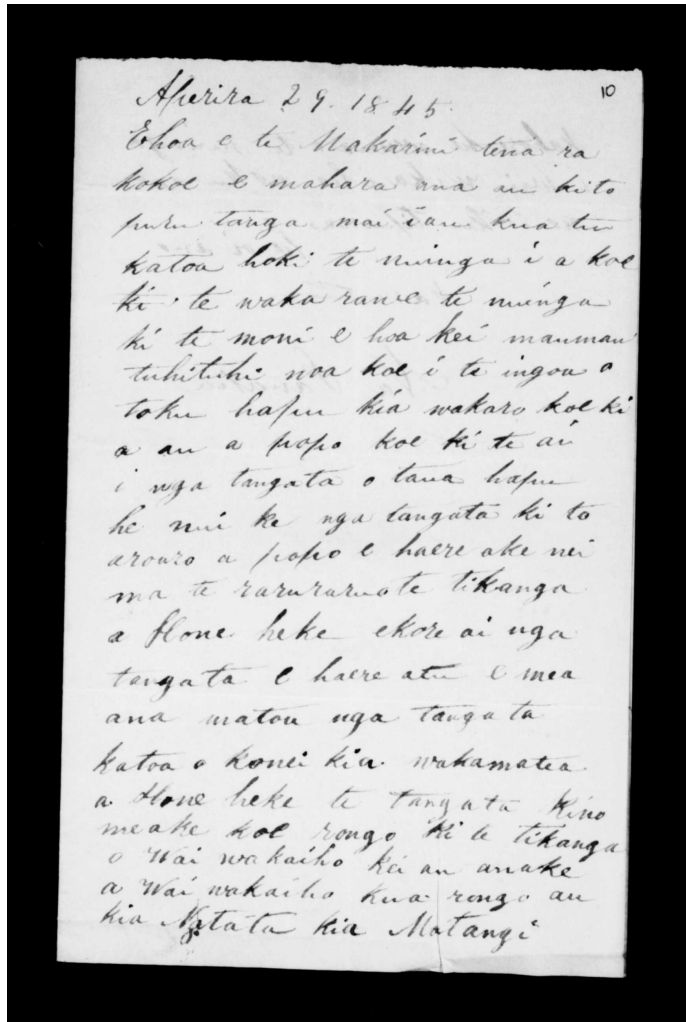 10
Aperira 29. 1845.
Ehoa e te Makarini tena ra
kokoe e mahara ana au kito
puru tanga mai i au kua tu
katoa hoki te nuinga i a koe
ki te waka rawe te nuinga
ki te moni e hoa kei maumau
tuhituhi noa koe i te ingoa o
toku hapu kia wakaro koe ki
a au a popo koe ki te ai
i nga tangata o taua hapu
he nui ke nga tangata ki to
aroaro a popo e haere ake nei
ma te rarurarua te tikanga
a Hone heke ekore ai nga
tangata e haere atu e mea
ana matou nga tangata
katoa o konei kia wakamatea
a Hone heke te tangata kino
meake koe rongo ki te tikanga
o Wai wakaiho kei au anake
a Wai wakaiho kua rongo au
kia Ngatata kia Matangi